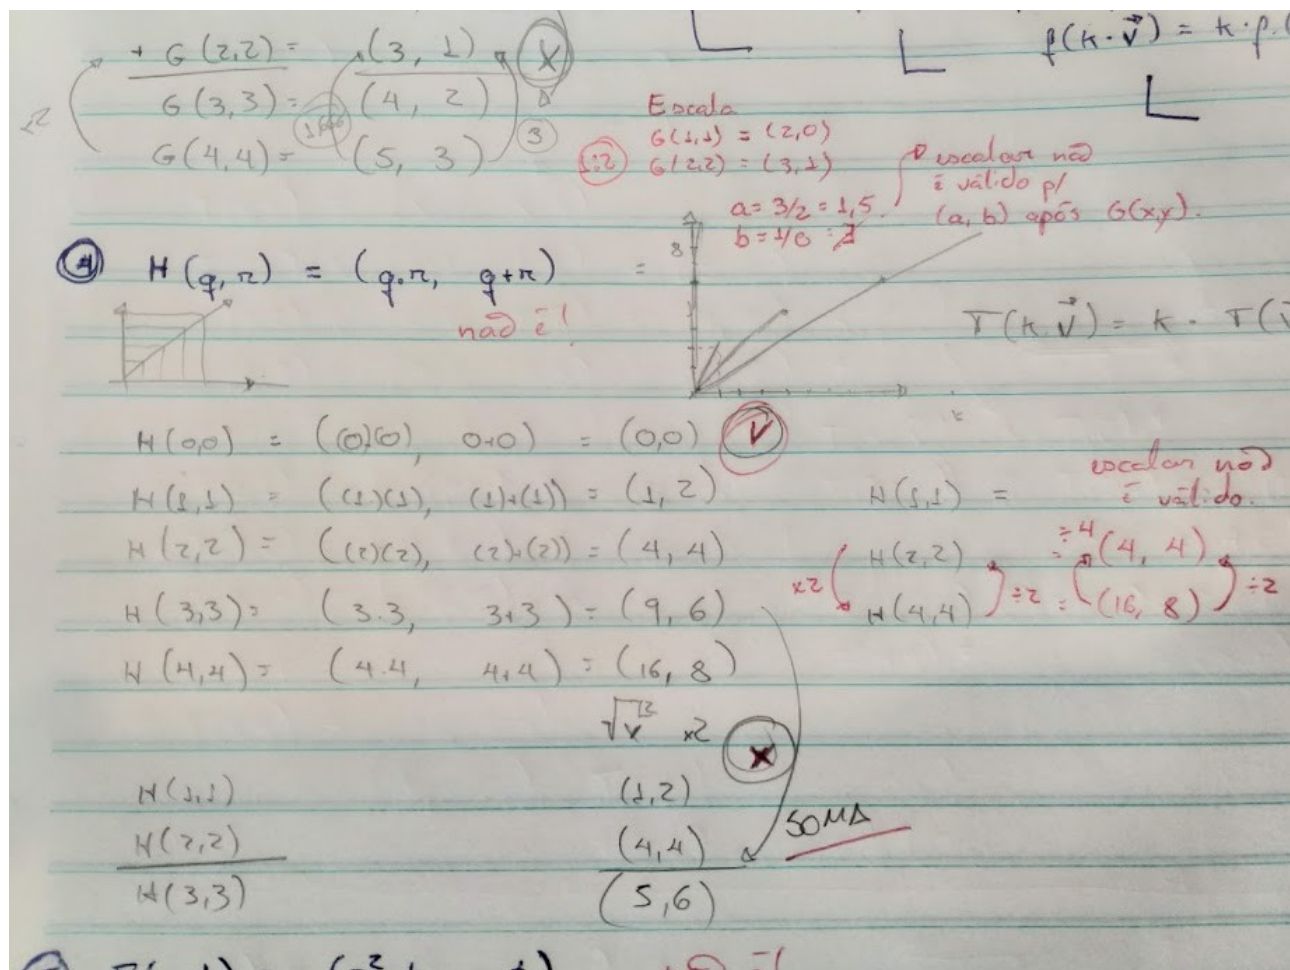 + G(2,2) = (3, 1) X
G(3,3) = (4, 2)
G(4,4) = (5, 3) 3
f(k·v⃗) = k·f·(
Escala
G(1,1) = (2,0)
1:2 G(2,2) = (3,1)
a = 3/2 = 1,5
b = 1/0 =
escalar não
é válido p/
(a, b) após G(x,y).
4 H(q,r) = (q.r, q+r) =
não é!
8
T(k.v⃗) = k · T(v⃗
H(0,0) = ((0)(0), 0+0) = (0,0) V
H(1,1) = ((1)(1), (1)+(1)) = (1, 2)
H(2,2) = ((2)(2), (2)+(2)) = (4, 4)
H(3,3) = (3.3, 3+3) = (9, 6)
H(4,4) = (4.4, 4+4) = (16, 8)
escalar não
é válido.
H(1,1) =
H(2,2) = (4, 4)
x2 ÷2 ÷4 ÷2
H(4,4) = (16, 8)
x2 X
H(1,1) (1,2)
H(2,2) (4,4)
SOMA
H(3,3) (5,6)